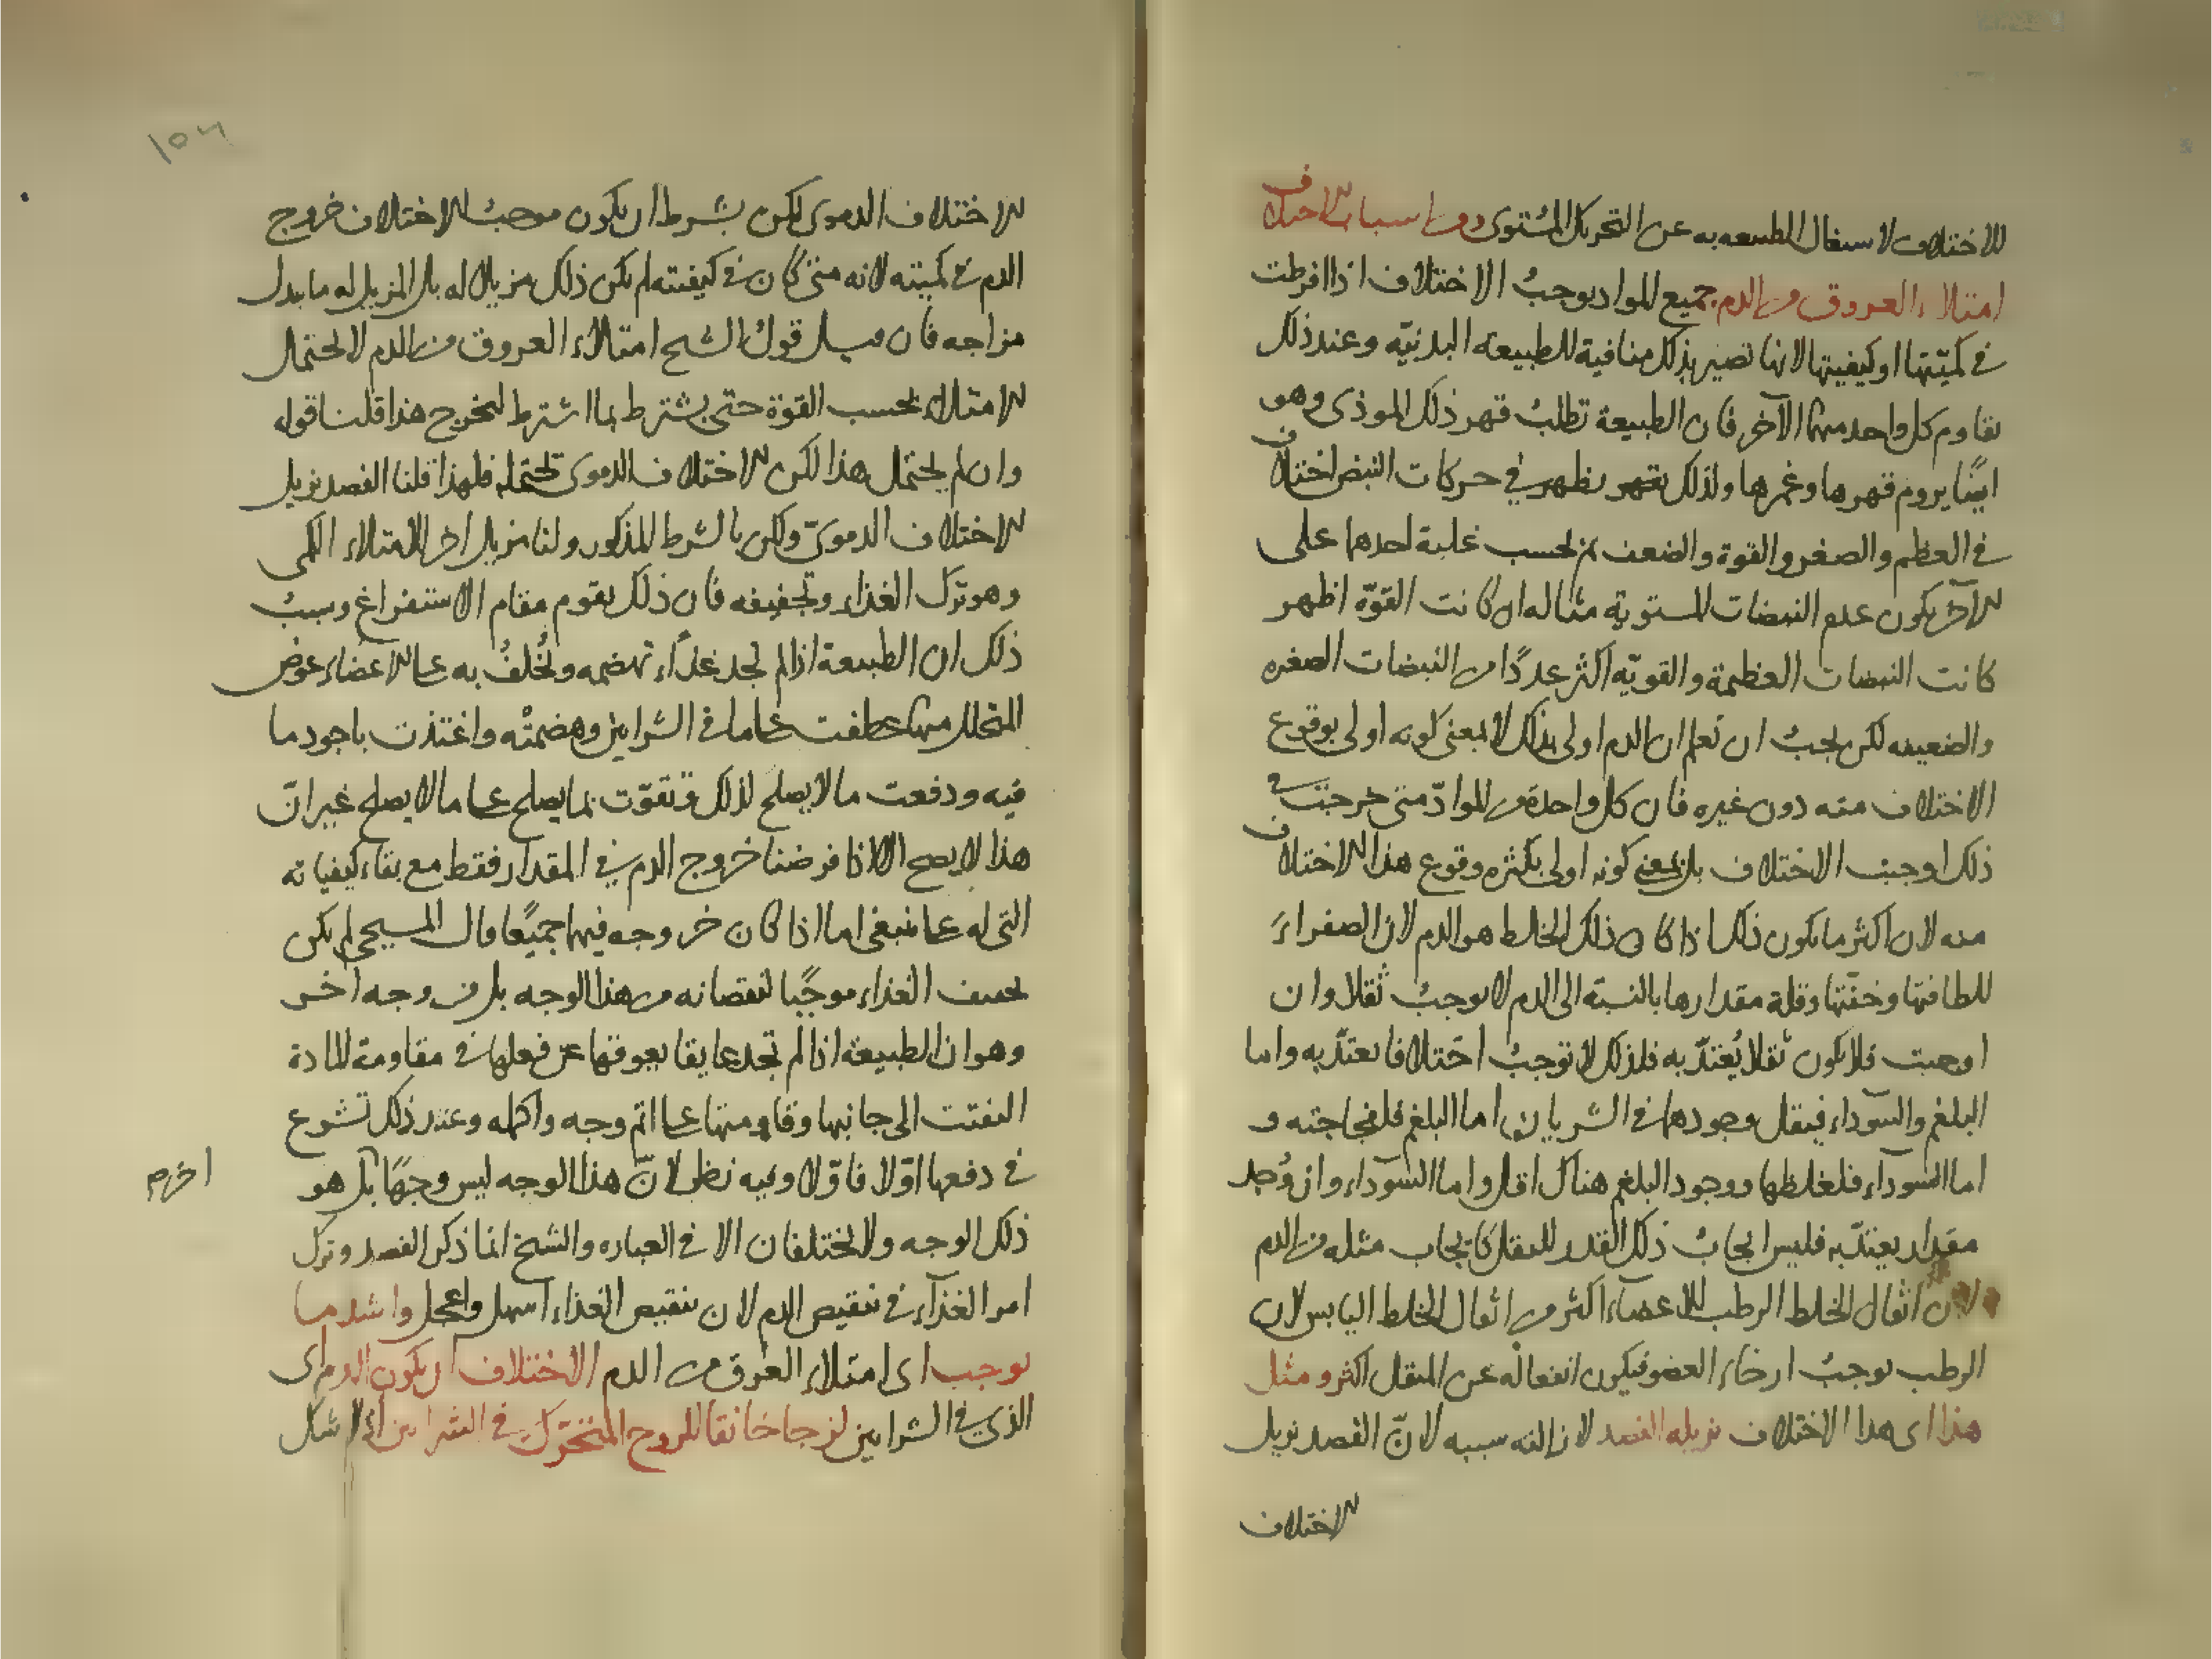 للاختلاف لاستغال الطبيعه به عن التحريك المستوى ومن اسباب الاختلاف
امتلاء العروق من الدم جميع المواد يوجبُ الاختلاف اذا افرطت
فى كميّتها او كيفيتها لانها تصير بذلك منافية للطبيعه البدنيّه وعند ذلك
تقاوم كل واحد منهما الآخر فان الطبيعة تطلبُ قهر ذلك الموذى وهو
ايضًا يروم قهرها وغمرها ولذلك يظهر فى حركات النبض اختلاف
فى العظم والصغر والقوة والضعف ثم بحسب غلبة احدهما على
الآخر يكون عدم النبضات المستوية مثاله ان كانت القوّة اظهر
كانت النبضات العظيمة والقويّه اكثر عددًا من النبضات الصغيره
والضعيفه لكن يجبُ ان تعلم ان الدم اولى بذلك لا بمعنى كونه اولى بوقوع
الاختلاف منه دون غيره فان كل واحدة من الموادّ متى خرجت فى
ذلك اوجبت الاختلاف بل بمعنى كونه اولى بكثره وقوع هذا الاختلاف
منه لان اكثر ما يكون ذلك اذا كان ذلك الخلط هو الدم لان الصفراءَ
للطافتها وخفّتها وقلة مقدارها بالنسبة الى الدم لا يوجبُ ثقلا وان
اوجبت فلا يكون ثقلا يُعْتدّ به فلذلك لا توجبُ اختلافا يعتدّ به واما
البلغم والسوداء فيقل وجودهما فى الشريان اما البلغم فلفجاجته و
اما السوداء فلغلظها ووجود البلغم هناك اقل واما السوداء وان وُجد
مقدار يعتدّ به فليس ايجابُ ذلك القدر للثقل كايجاب مثله من الدم
لان اثقال الخلط الرطب للاعضاء اكثر من اثقال الخلط اليابس لان
الرطب يوجبُ ارخاء العضو فيكون انفعاله عن المثقل اكثر ومثل
هذا اى هذا الاختلاف يزيله الفصد لازالته سببه لانّ الفصد يزيل
الاختلاف
١٥٦
الاختلاف الدموى لكن بشرط ان يكون موجبُ الاختلاف خروج
الدم فى كميته لانه متى كان فى كيفيته لم يكن ذلك مزيلا له بل المزيل له ما يبدل
مزاجه فان قيل قول الشيخ امتلاء العروق من الدم لا يحتمل
الامتلاء بحسب القوة حتى يشترط بما اشترط ليخرج هذا قلنا قوله
وان لم يحتمل هذا لكن الاختلاف الدموى يحتمله فلهذا قلنا الفصد يزيل
الاختلاف الدموىّ ولكن بالشرط المذكور ولنا مزيل اخر للامتلاء الكمى
وهو ترك الغذاء وتجفيفه فان ذلك يقوم مقام الاستفراغ وسببُ
ذلك ان الطبيعة اذا لم تجد غذاء تهضمه وتُخلفُ به على الاعضاء عوض
المتحلل منها عطفت على ما فى الشرايين وهضمتْه واغتذت باجود ما
فيه ودفعت ما لا يصلح لذلك وتقوّت بما يصلح على ما لا يصلح غير انّ
هذا لا يصح الا اذا فرضنا خروج الدم فى المقدار فقط مع بقاء كيفياته
التى له على ما ينبغى اما اذا كان خروجه فيهما جميعًا قال المسيحى لم يكن
تخفيف الغذاء موجبًا لنقصانه من هذا الوجه بل من وجه اخر
وهو ان الطبيعة اذا لم تجد عايقا يعوقها عن فعلها فى مقاومة المادة
التفتت الى جانبها وقاومتها على اتم وجه واكمله وعند ذلك تشرع
فى دفعها اوّلا فاوّلا وفيه نظر لانّ هذا الوجه ليس وجهًا بل هو
اخر م
ذلك الوجه ولا يختلفان الا فى العباره والشيخ انما ذكر الفصد وترك
امر الغذاء فى تنقيص الدم لان تنقيص الغذاء اسهل واعجل واشد ما
يوجب اى امتلاء العروق من الدم الاختلاف ان يكون الدم اى
الذى فى الشرايين لزجا خانقا للروح المتحرّك فى الشرايين